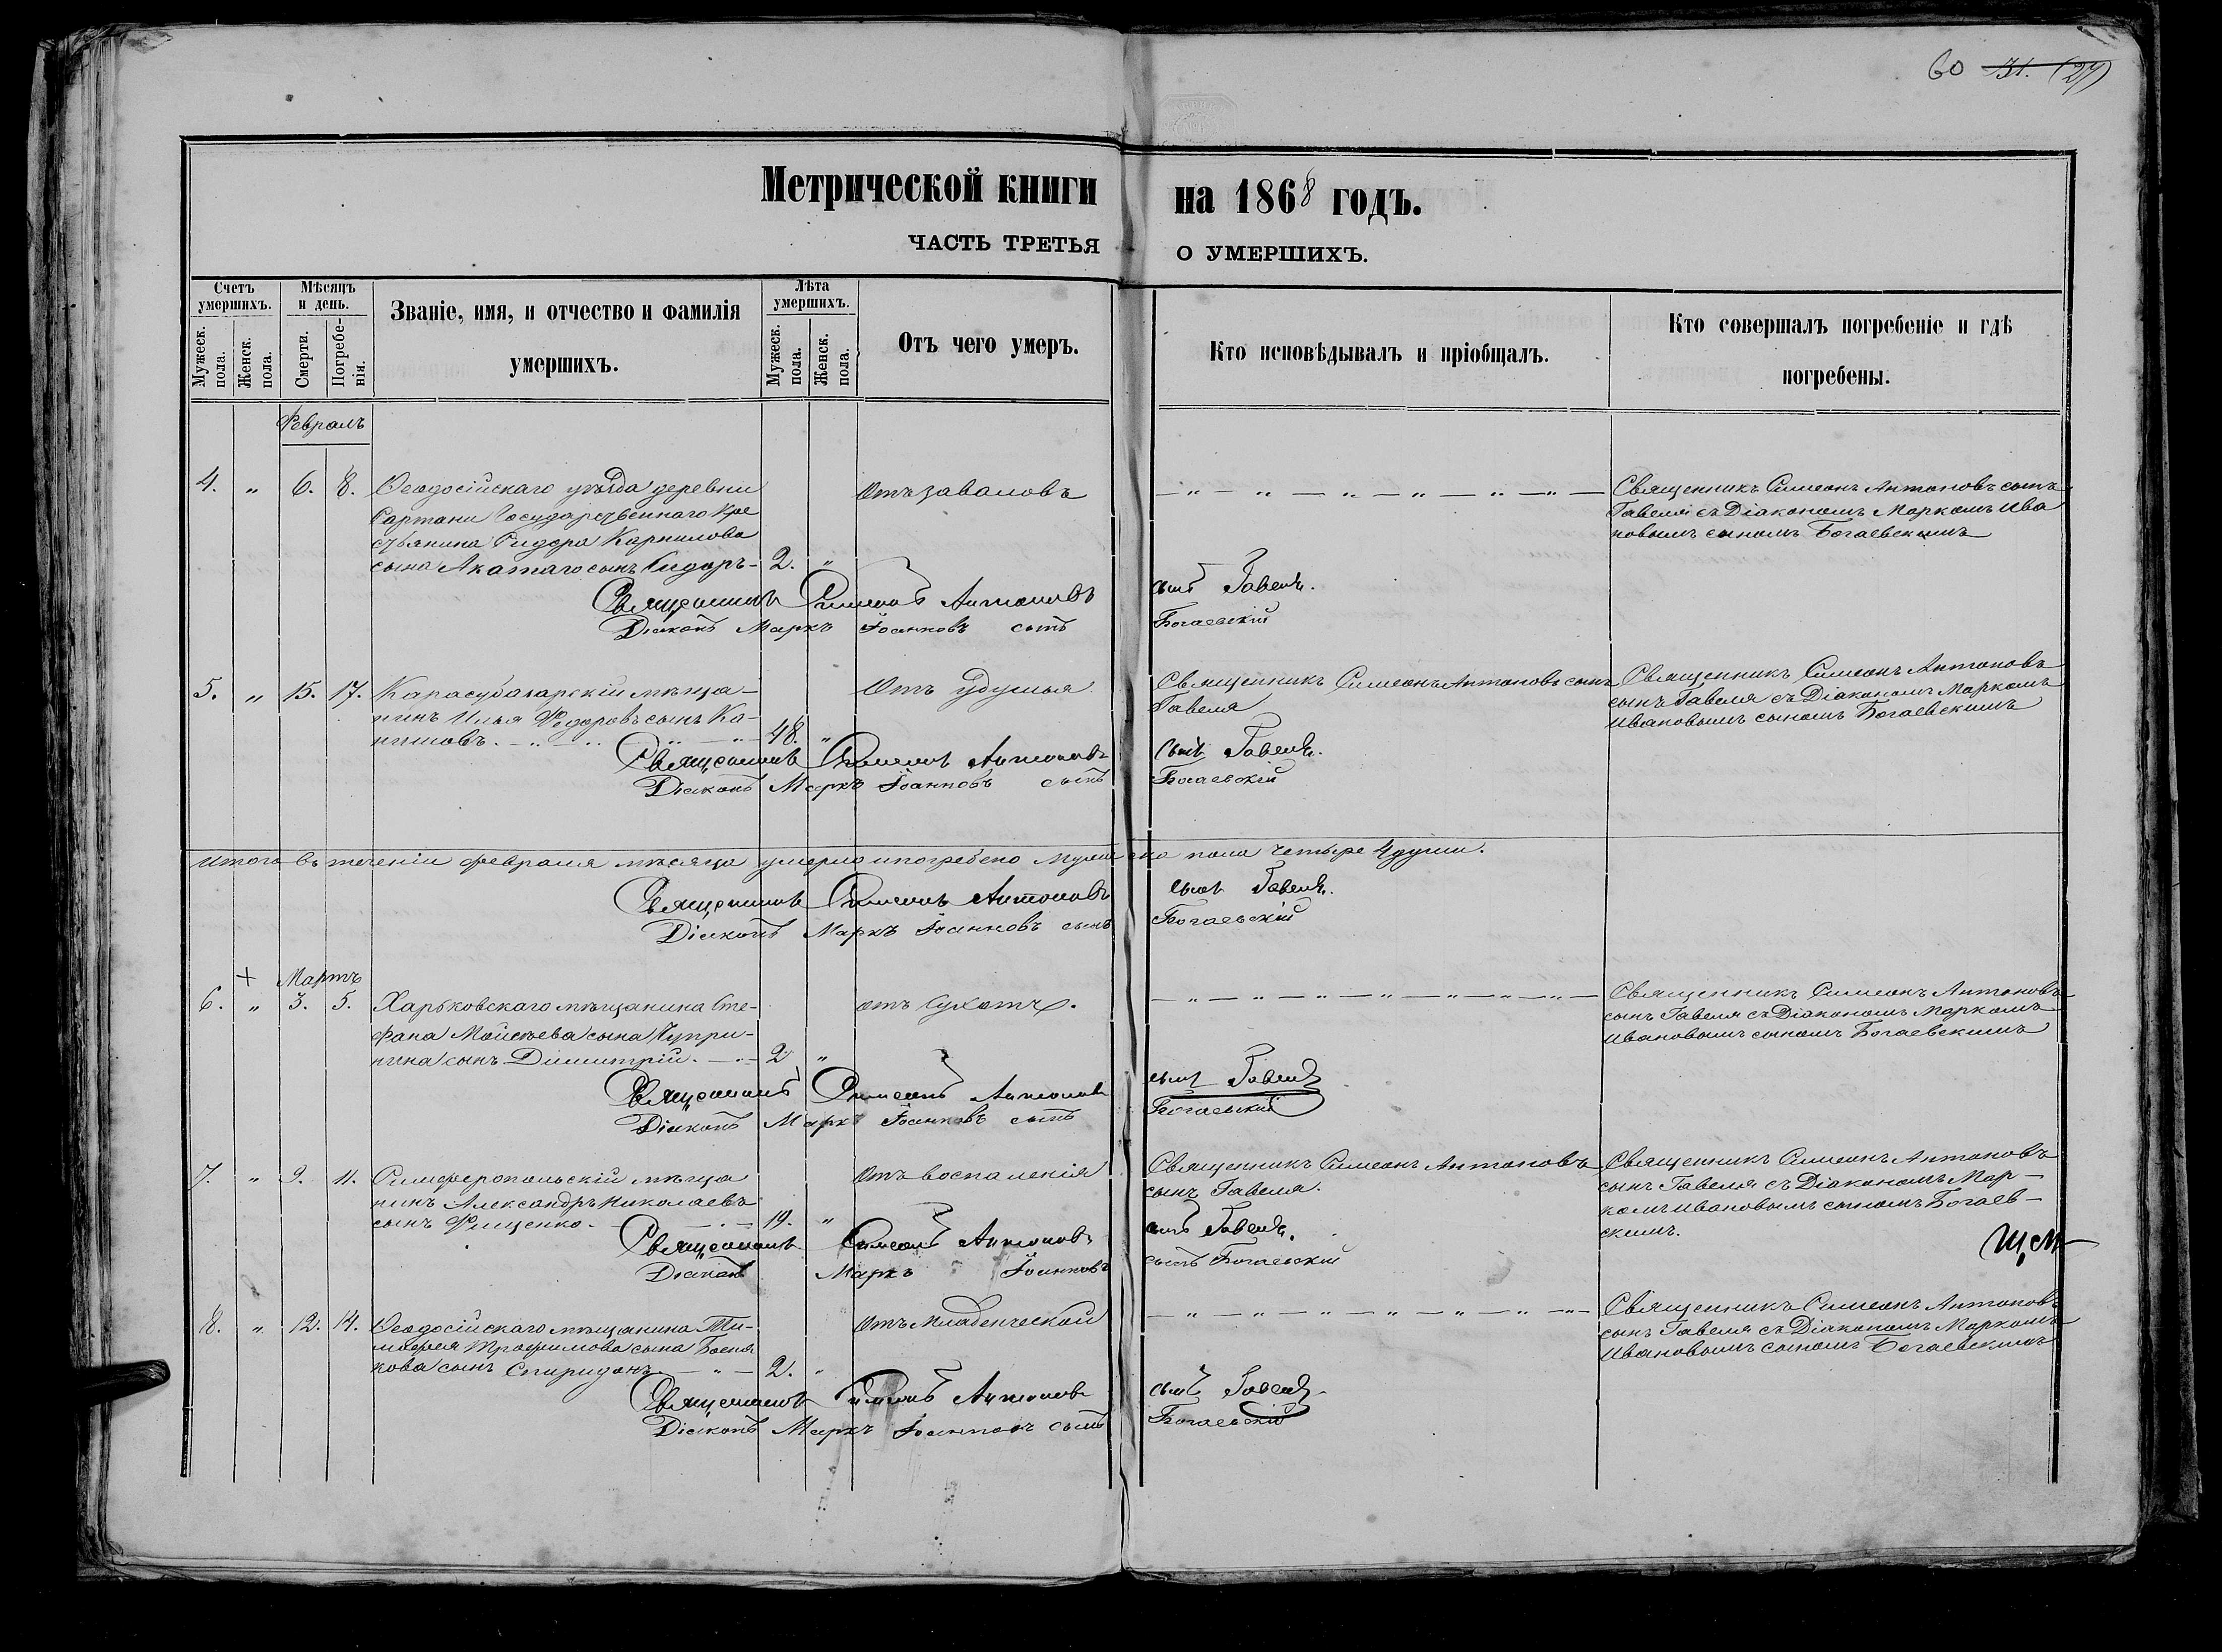 60 131. (27)
Метрической книги на 1868 годъ.
ЧАСТЬ ТРЕТЬЯ О УМЕРШИХЪ.
Счетъ умершихъ.
Мужеск. пола.
Женск. пола.
Мѣсяцъ и день.
Смерти.
Погребенія.
Званіе, имя, и отчество и фамилія
умершихъ.
Лѣта умершихъ.
Мужеск. пола.
Женск. пола.
Отъ чего умеръ.
Кто исповѣдывалъ и пріобщалъ.
Кто совершалъ погребеніе и гдѣ
погребены.
Февраль
4. „ 6. 8. Ѳеодосійскаго уѣзда деревни
Сартани Государственнаго Кре
стьянина Сидора Карпилова
сына Акатаго сынъ Сидоръ - 2. „
Отъ заваловъ
Священникъ Симеонъ Антоновъ сынъ
Гавеля съ Діакономъ Маркомъ Ива
новымъ сыномъ Богаевскимъ
Священникъ Симеонъ Антоновъ сынъ Гавеля.
Діаконъ Маркъ Іоанновъ сынъ Богаевскій
5. „ 15. 17. Карасубазарскій мѣща-
нинъ Илья Ѳедоровъ сынъ Ка-
48. „
Отъ удушья
Священникъ Симеонъ Антоновъ сынъ
Гавеля
Священникъ Симеонъ Антоновъ
сынъ Гавеля съ Діакономъ Маркомъ
Ивановымъ сыномъ Богаевскимъ
Священникъ Симеонъ Антоновъ сынъ Гавеля.
Діаконъ Маркъ Іоанновъ сынъ Богаевскій
Итого въ теченіи февраля мѣсяца умерло и погребено мужеска пола четыре 4 души.
Священникъ Симеонъ Антоновъ сынъ Гавеля.
Діаконъ Маркъ Іоанновъ сынъ Богаевскій
+ Мартъ
6. „ 3. 5. Харьковскаго мѣщанина Сте-
фана Моисѣева сына Чупри-
нина сынъ Димитрій. 2 „
отъ Сухотъ.
Священникъ Симеонъ Антоновъ
сынъ Гавеля съ Діакономъ Маркомъ
Ивановымъ сыномъ Богаевскимъ
Священникъ Симеонъ Антоновъ сынъ Гавеля
Діаконъ Маркъ Іоанновъ сынъ Богаевскій
7. „ 9. 11. Симферопольскій мѣща
нинъ Александръ Николаевъ
сынъ Фищенко. 19. „
Отъ воспаленія
Священникъ Симеонъ Антоновъ
сынъ Гавеля.
Священникъ Симеонъ Антоновъ
сынъ Гавеля съ Діакономъ Мар-
комъ Ивановымъ сыномъ Богаев-
скимъ.
Священникъ Симеонъ Антоновъ сынъ Гавеля.
Діаконъ Маркъ Іоанновъ сынъ Богаевскій
8. „ 12. 14. Ѳеодосійскаго мѣщанина Ти-
мофея Трофимова сына
кова сынъ Спиридонъ 2. „
Отъ Младенческой
Священникъ Симеонъ Антоновъ
сынъ Гавеля съ Діакономъ Маркомъ
Ивановымъ сыномъ Богаевскимъ
Священникъ Симеонъ Антоновъ сынъ Гавеля
Діаконъ Маркъ Іоанновъ сынъ Богаевскій